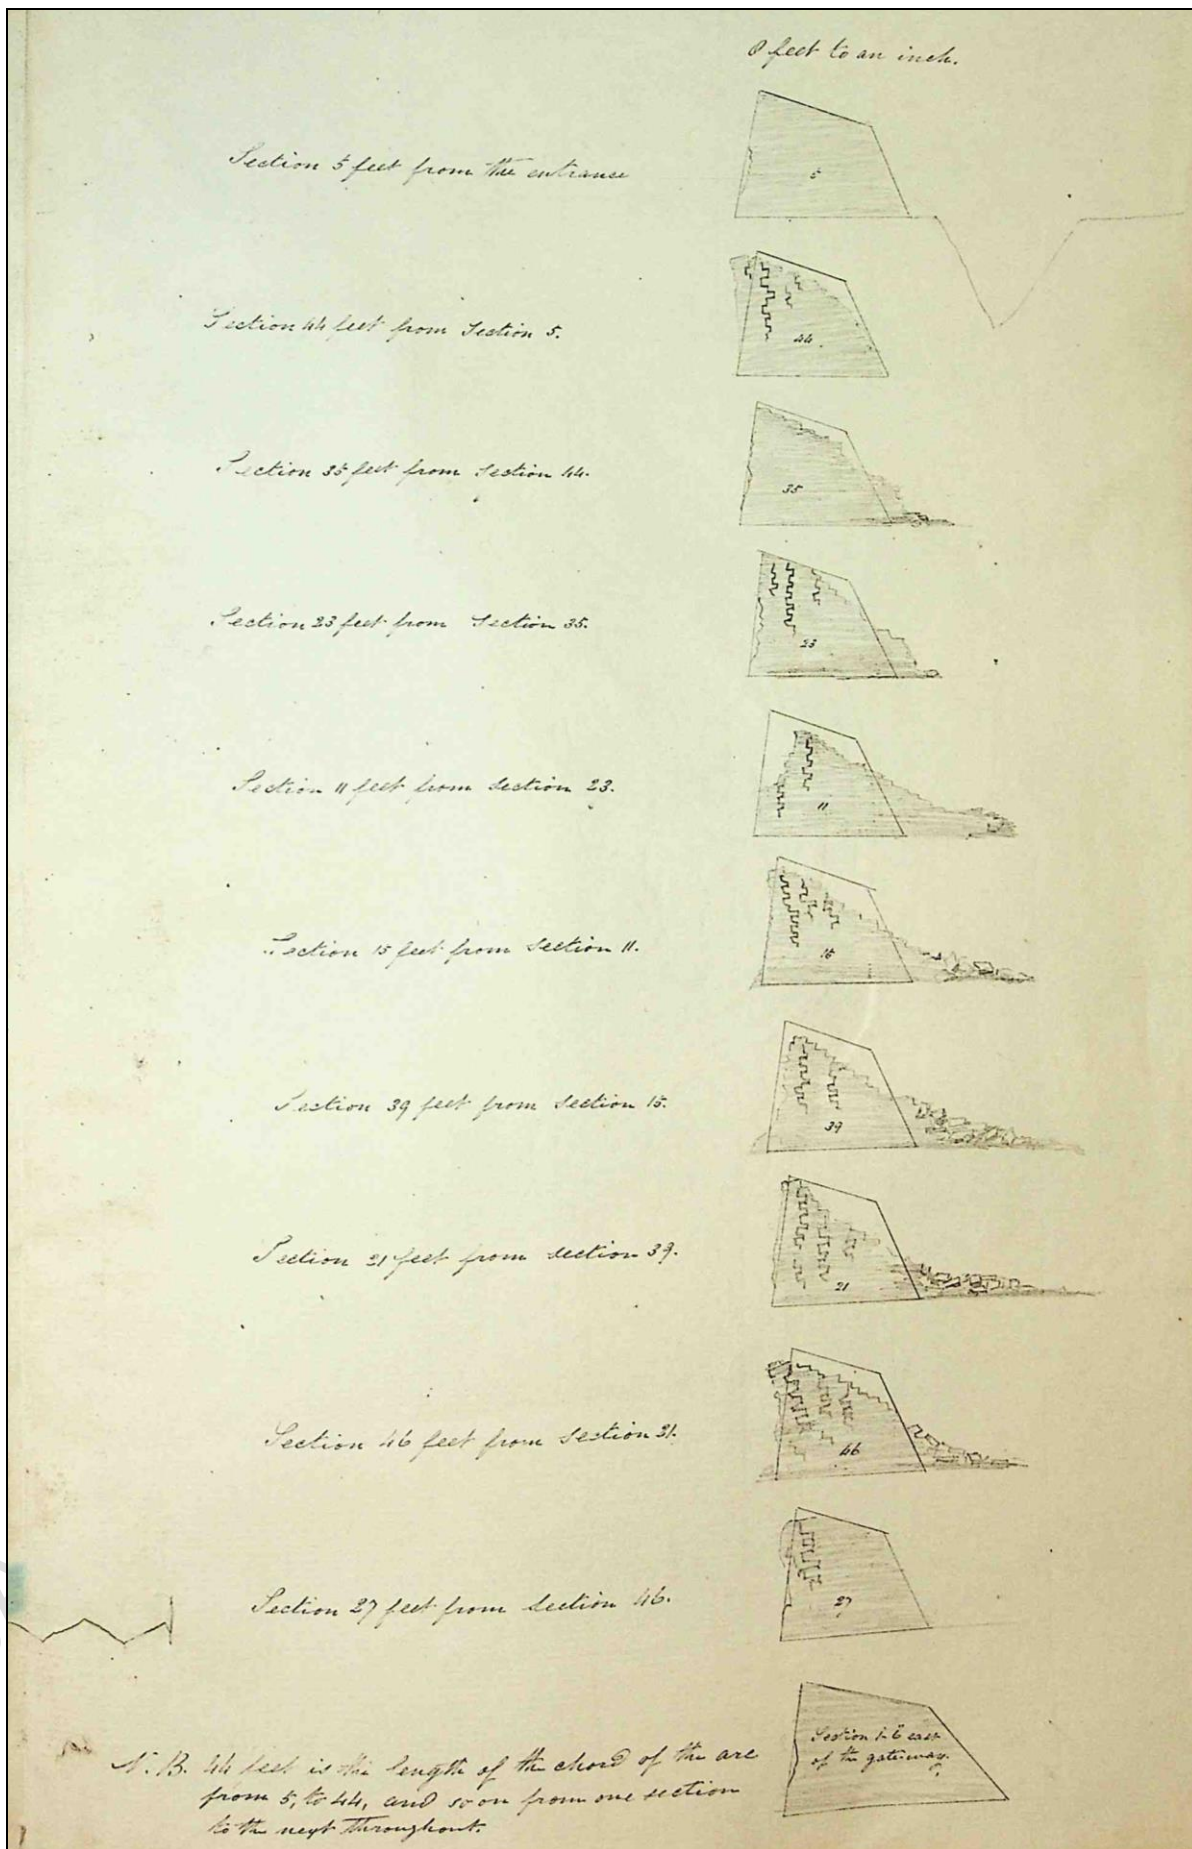 8 feet to an inch.
Section 5 feet from the entranse
5
Section 44 feet from Section 5.
44
Section 35 feet from Section 44.
35
Section 23 feet from Section 35.
23
Section 11 feet from section 23.
11
Section 15 feet from Section 11.
15
Section 39 feet from Section 15.
39
Section 21 feet from section 39.
21
Section 46 feet from Section 21.
46
Section 27 feet from Section 46.
27
Section east
of the gateway.
N.B. 44 feet is the length of the chord of the arc
from 5, to 44, and so on from one section
to the next throughout.